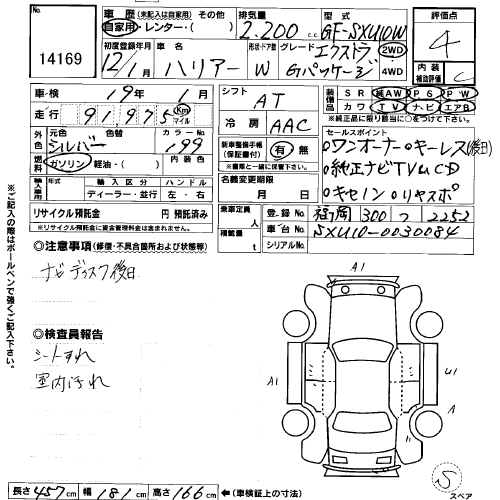 No.
14169
車歴 (未記入は自家用) その他
自家用・レンター・( )
排気量
2.200 c.c.
型式
GF-SXU10W
評価点
4
内装 補助評価 C
初度登録年月
12/1月
車名
ハリアー
形状・ドア数
W
グレード エクストラ
Gパッケージ
2WD
4WD
車・検 19年 1月
走行 91975 Km マイル
シフト AT
冷房 AAC
装備品 SR 純AW PS PW
カワ TV ナビ エアB
※純正品に限り該当に○をつけて下さい。
外色 元色 シルバー 色替 カラーNo. 199
燃料 ガソリン・軽油・( ) 内装色
輸入車用 形式 輸入区分 ハンドル
ディーラー・並行 左・右
新車整備手帳 (保証書付) 有 無
※車歴と一緒に保管して下さい。
名義変更期限
月 日
セールスポイント
○ワンオーナー○キーレス(後日)
○純正ナビTVuCD
○キセノン○リヤスポ
リサイクル預託金 円 預託済み
※リサイクル預託金に資金管理料金は含まれません。
乗車定員 人
積載量 t
登録No. 福岡 300 つ 2252
車台No. SXU10-0030084
シリアルNo.
◎注意事項 (修復・不具合箇所および状態等)
ナビディスク後日
◎検査員報告
シートすれ
室内汚れ
※ご記入の際はボールペンで強くご記入下さい。
A1
A1
U1
A
S
スペア
長さ 457cm 幅 181cm 高さ 166cm ←(車検証上の寸法)